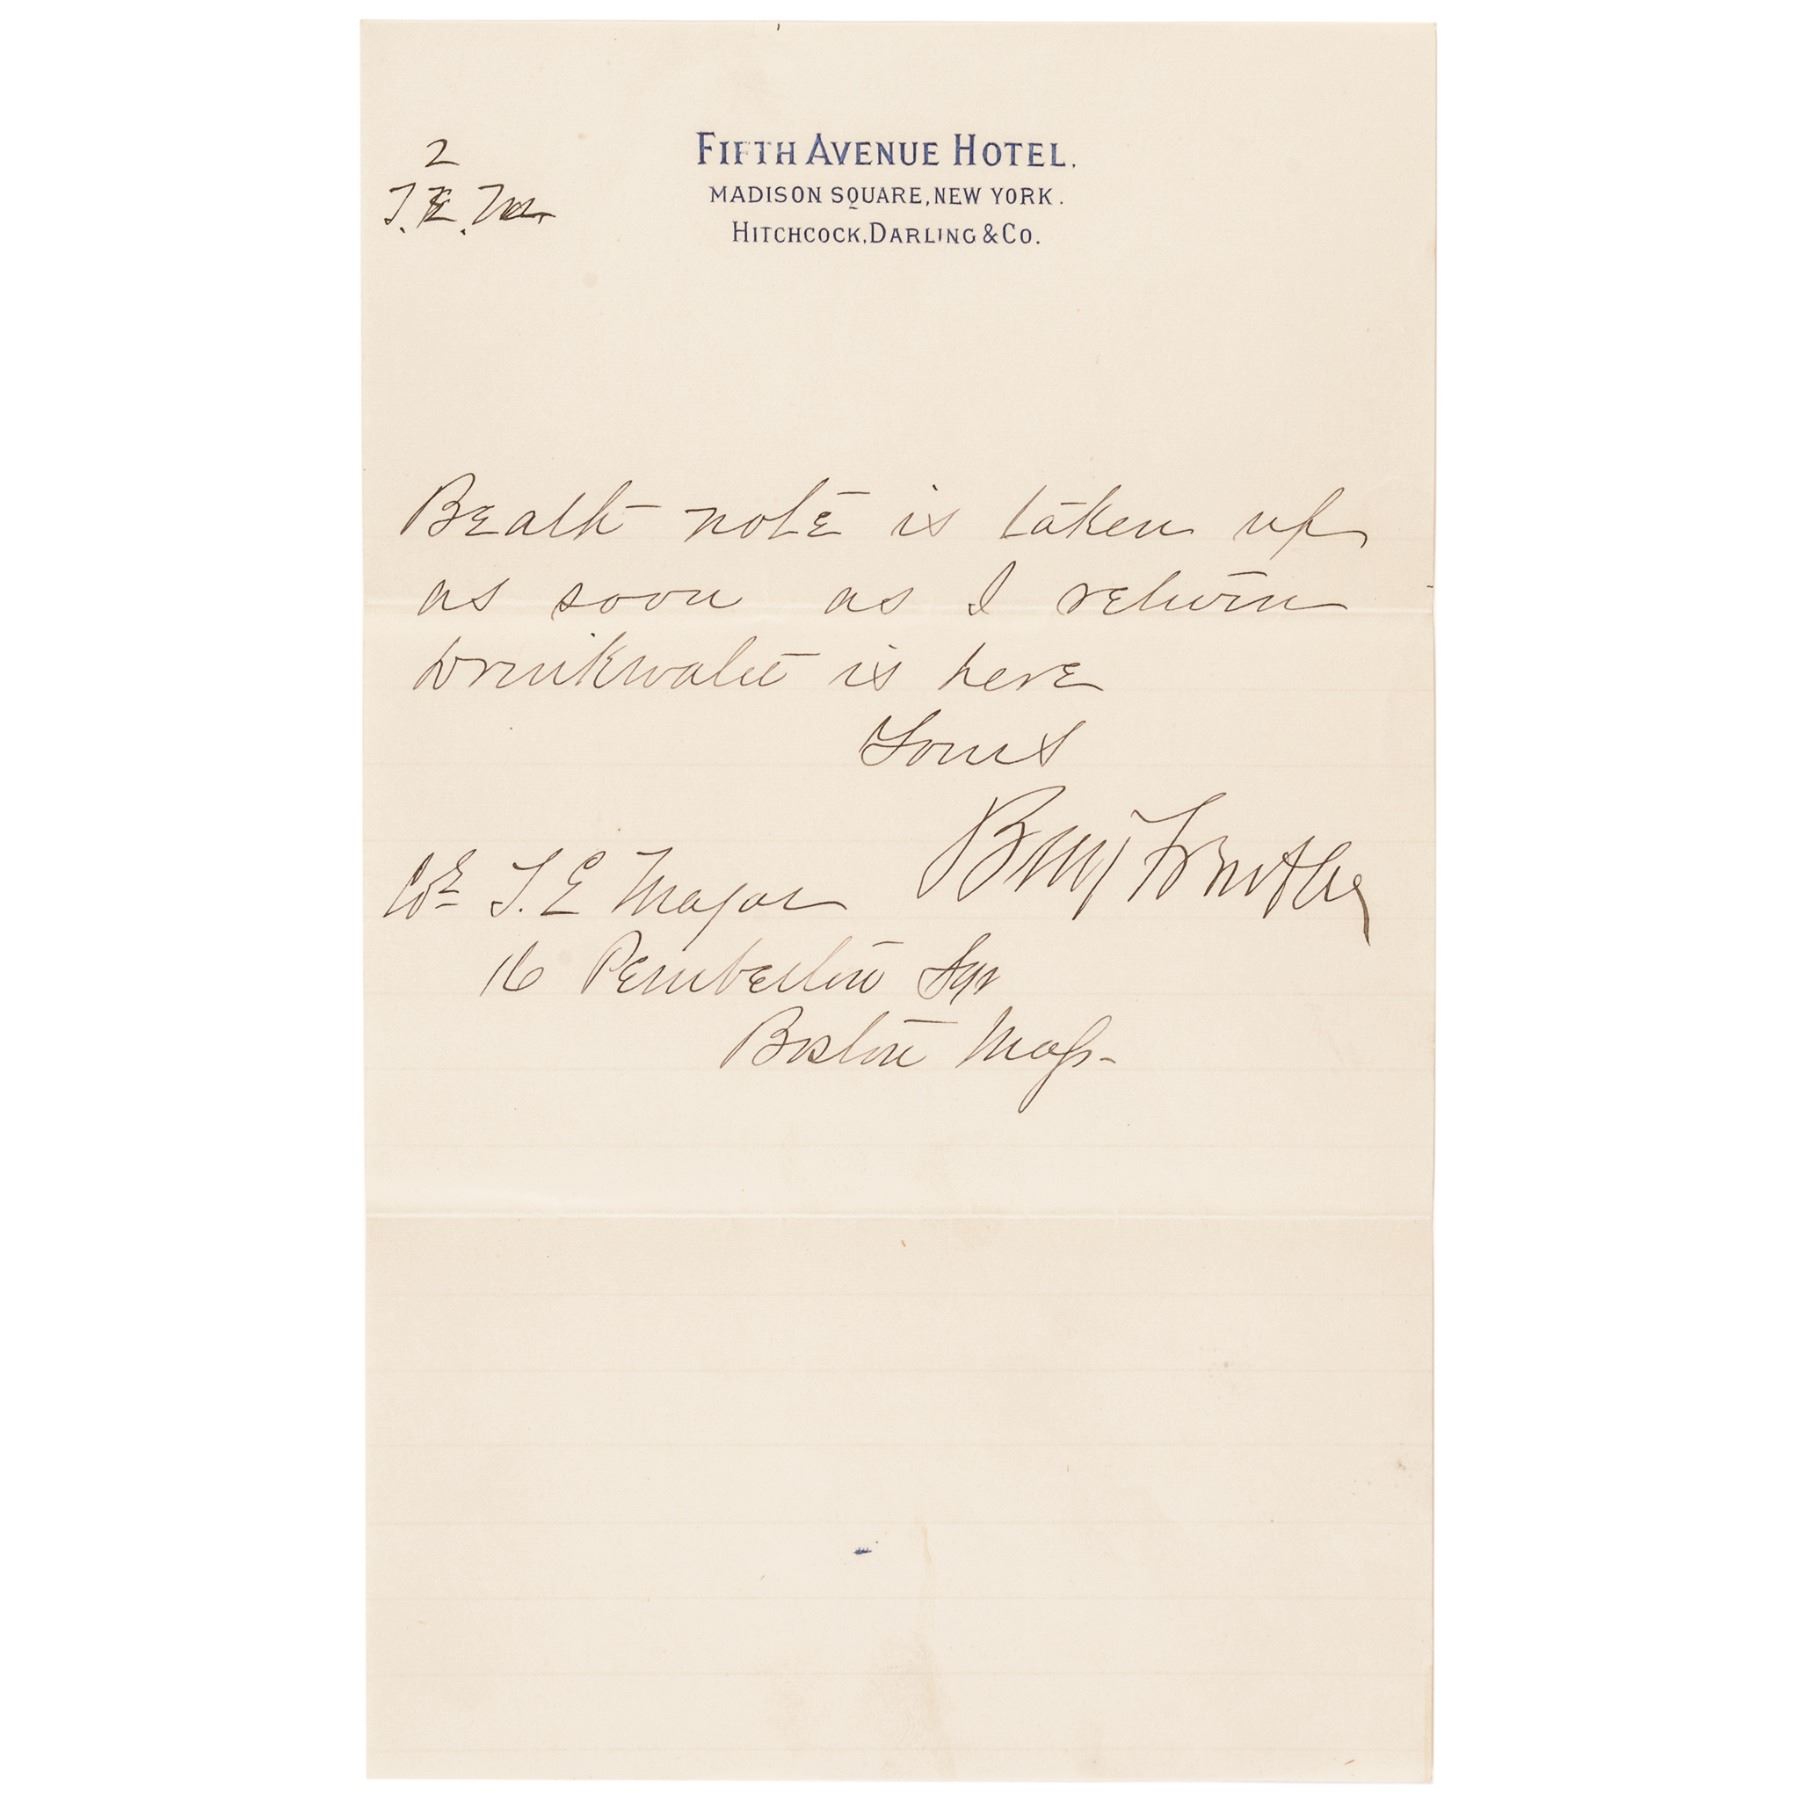 FIFTH AVENUE HOTEL.
MADISON SQUARE, NEW YORK.
HITCHCOCK, DARLING & CO.
2
T. E. M.
Beath note is taken up
as soon as I return
Drinkwater is here
Yours
Benj F Butler
T. E Major
16 Pemberton Sqr
Boston Mass-